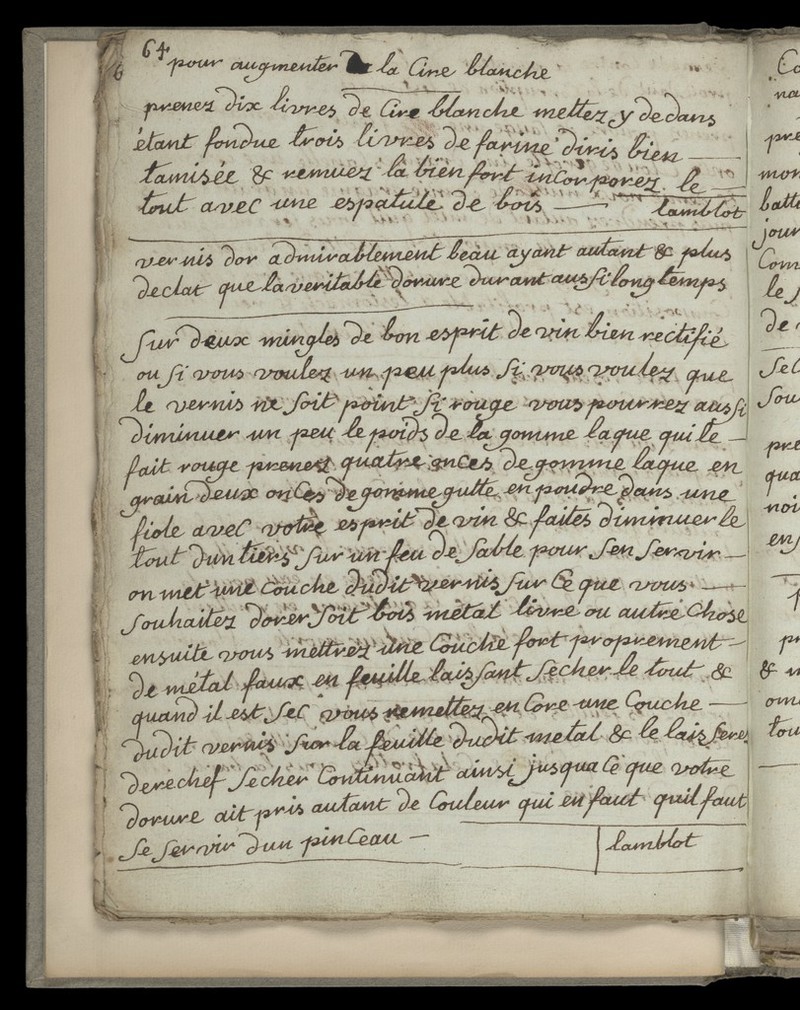 64
6 pour augmenter la Cire blanche
prenez dix livres de Cire blanche mettez y dedans
étant fondue trois livres de farine diris bien
tamisée & remuez la bien fort incorporez le
tout avec une espatule de bois lamblot
vernis dor admirablement beau ayant autant & plus
declat que la veritable dorure durant aussi longtemps
Sur deux mingles de bon esprit de vin bien rectifié
ou si vous voulez un peu plus si vous voulez que
le vernis ne soit point si rouge vous pourrez aussi
diminuer un peu le poids de la gomme laque qui le
fait rouge prenez quatre onces de gomme laque en
grain deux onces de gomme gutte en poudre dans une
fiole avec votre esprit de vin & faites diminuer le
tout dun tiers sur un feu de sable pour sen servir
on met une couche dudit vernis sur ce que vous
souhaitez dorer soit bois métal livre ou autre chose
ensuite vous mettrez une couche fort proprement
de métal faux en feuille laissant secher le tout &
quand il est sec vous remettez encore une couche
dudit vernis sur la feuille dudit metal & le laisserez
derechef secher continuant ainsi jusqua ce que votre
dorure ait pris autant de couleur qui en faut quil faut
se servir dun pinceau lamblot
Co
na
pre
mon
batt
jour
Com
le
de
sec
sou
pre
qua
noi
en
pr
& 
om
tou